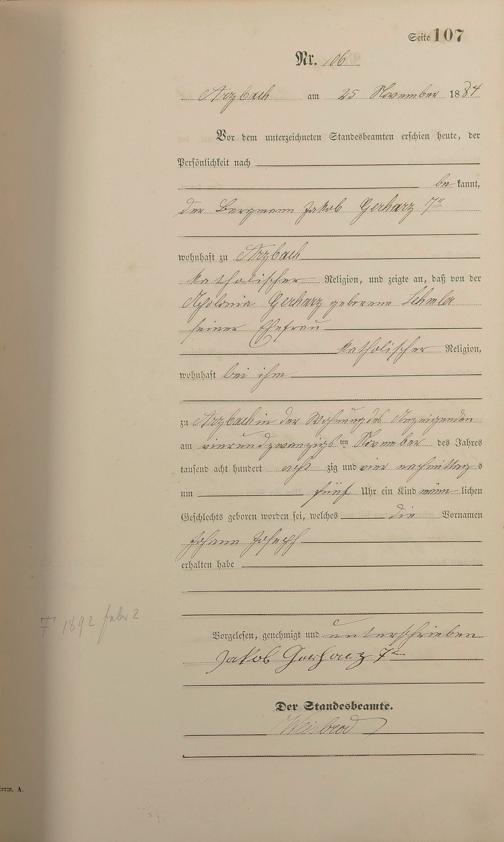 Seite 107
Nr. 106
Arzbach am 25 November 1884
Vor dem unterzeichneten Standesbeamten erschien heute, der
Persönlichkeit nach
be kannt,
der Bergmann Jakob Gerharz 7r
wohnhaft zu Arzbach
katholischer Religion, und zeigte an, daß von der
Gerharz geborene
seiner Ehefrau
katholischer Religion,
wohnhaft bei ihm
zu Arzbach in der Wohnung des Anzeigenden
am vierundzwanzigsten November des Jahres
tausend acht hundert acht zig und vier nachmittag s
um fünf Uhr ein Kind männ lichen
Geschlechts geboren worden sei, welches die Vornamen
Johann Joseph
erhalten habe
1892 febr 2
Vorgelesen, genehmigt und unterschrieben
Jakob Gerharz 7r
Der Standesbeamte.
A.